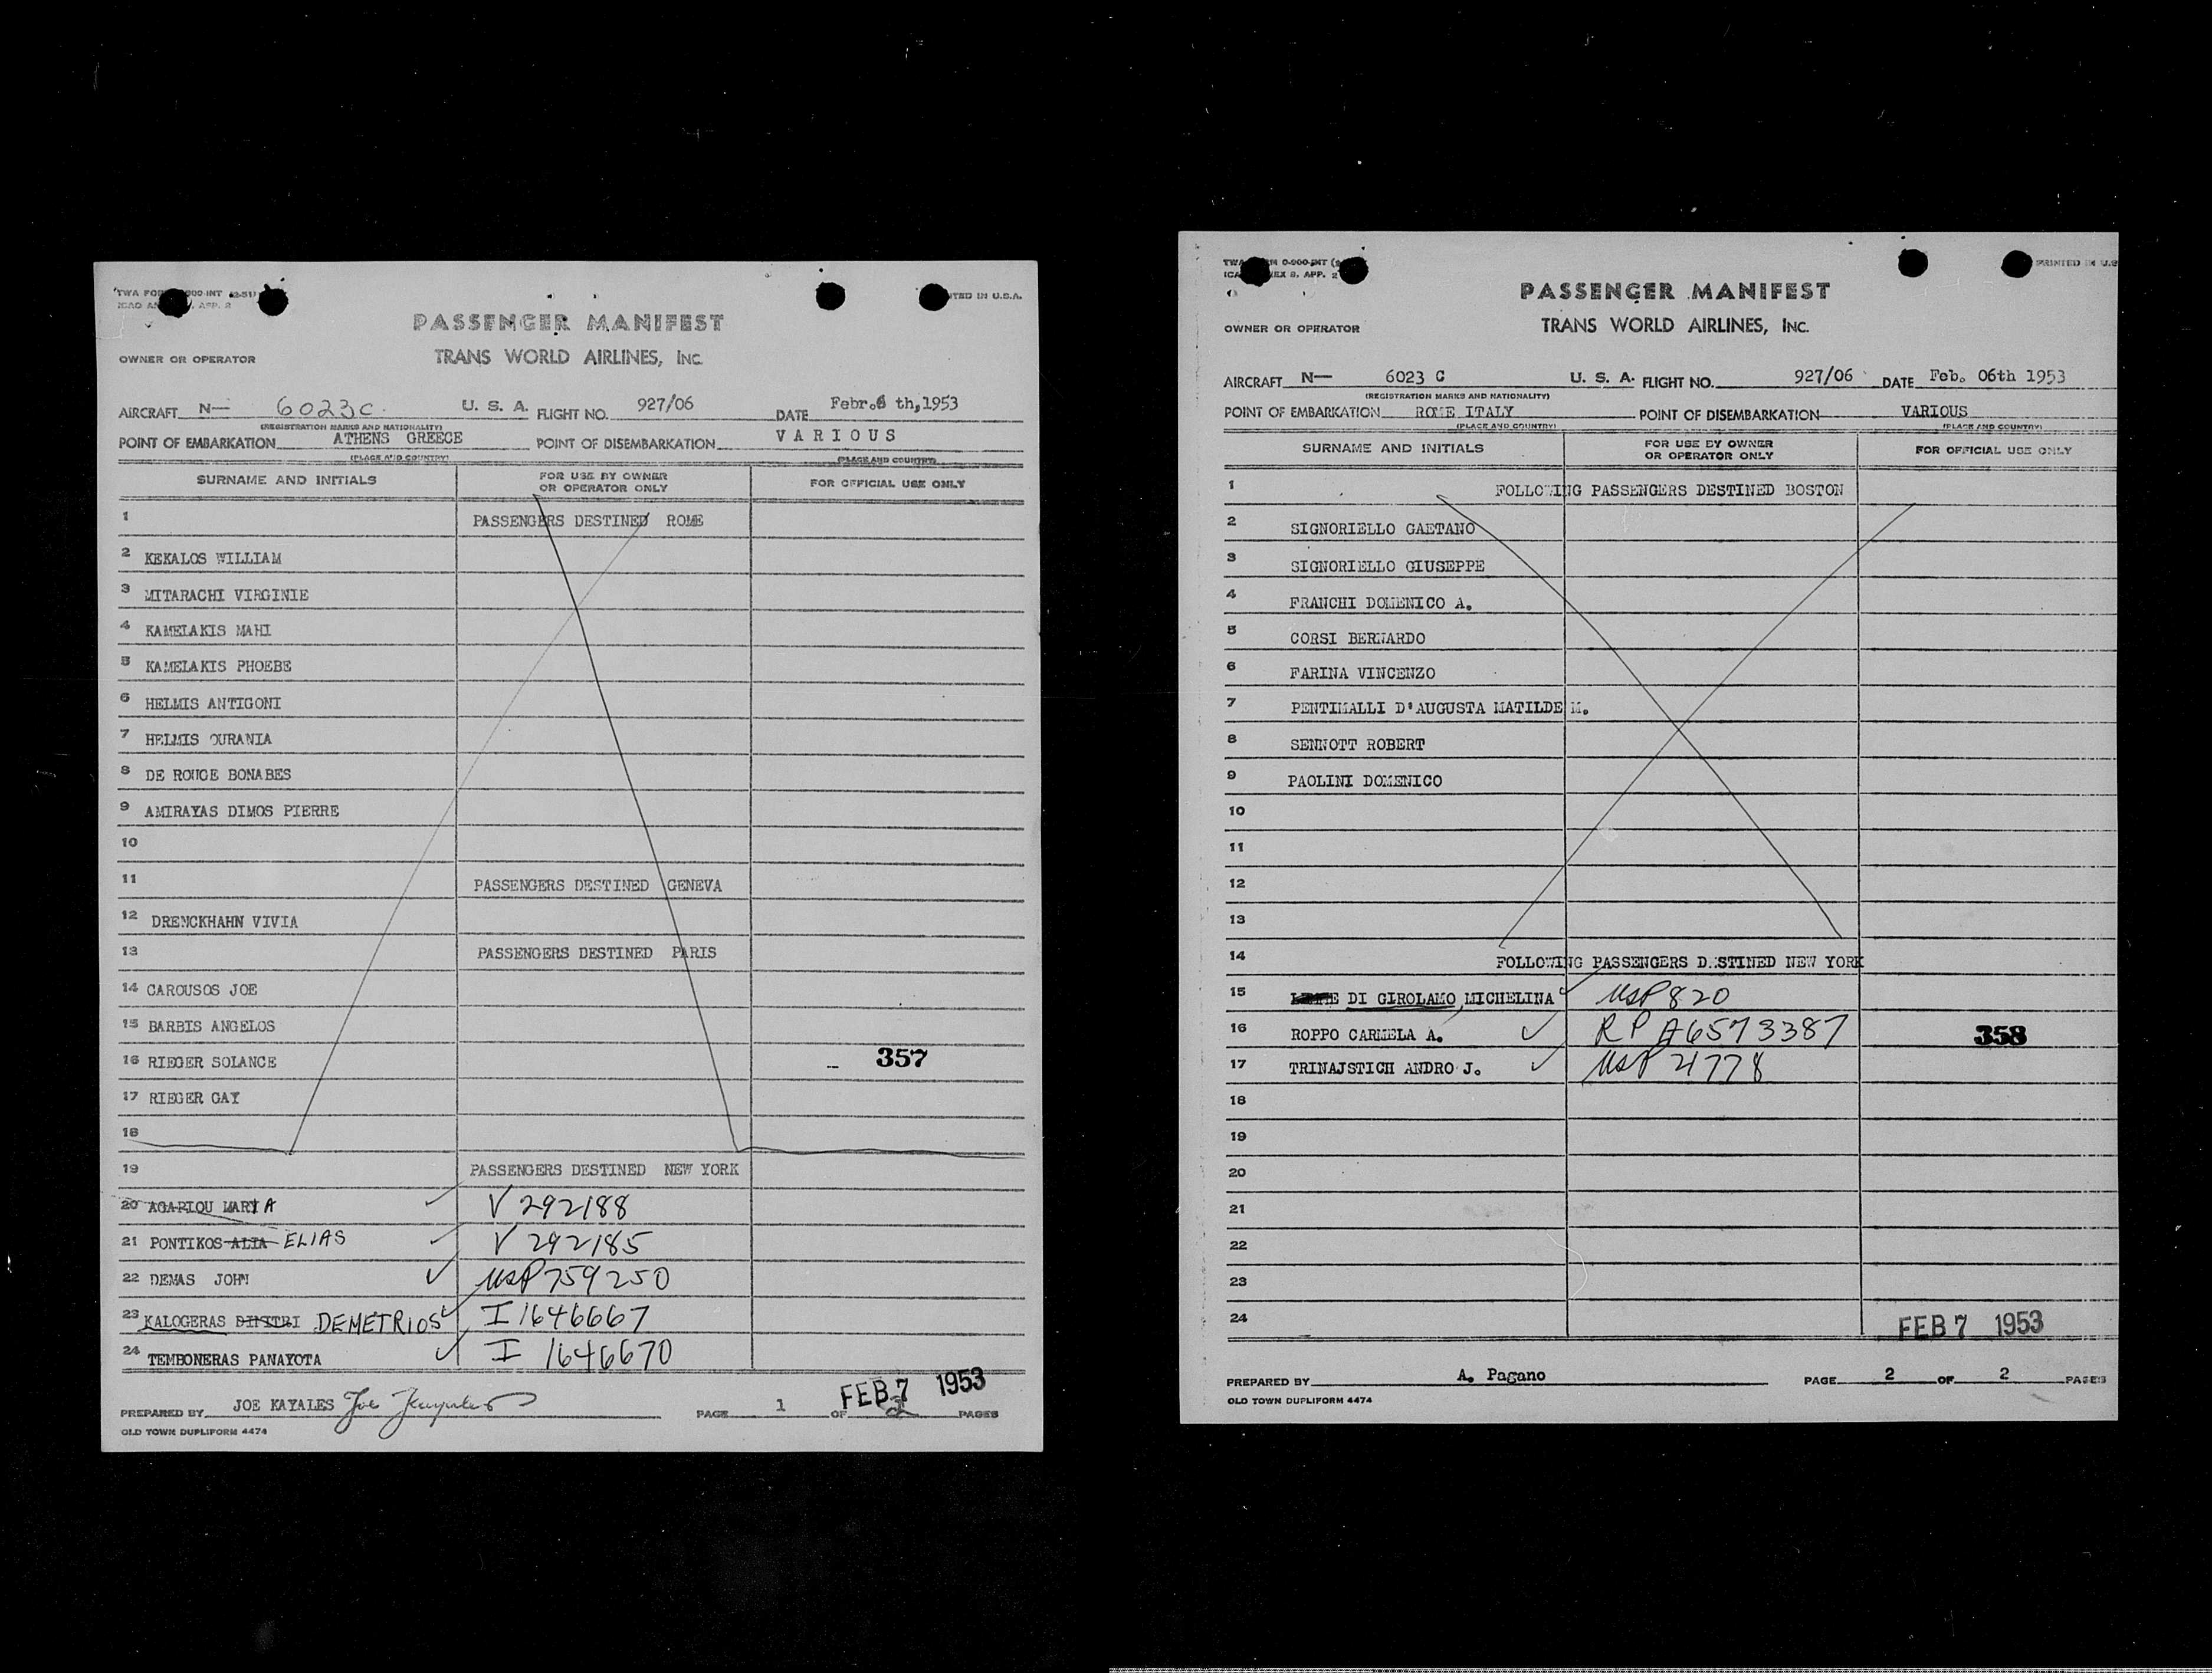 PASSENGER MANIFEST
OWNER OR OPERATOR TRANS WORLD AIRLINES, INC.
AIRCRAFT N— 6023C U. S. A. FLIGHT NO. 927/06 DATE Febr.6 th,1953
(REGISTRATION MARKS AND NATIONALITY)
POINT OF EMBARKATION ATHENS GREECE POINT OF DISEMBARKATION VARIOUS
(PLACE AND COUNTRY) (PLACE AND COUNTRY)
SURNAME AND INITIALS FOR USE BY OWNER OR OPERATOR ONLY FOR OFFICIAL USE ONLY
1 PASSENGERS DESTINED ROME
2 KEKALOS WILLIAM
3 MITARACHI VIRGINIE
4 KAMELAKIS MAHI
5 KAMELAKIS PHOEBE
6 HELMIS ANTIGONI
7 HELMIS OURANIA
8 DE ROUGE BONABES
9 AMIRAYAS DIMOS PIERRE
10
11 PASSENGERS DESTINED GENEVA
12 DRENCKHAHN VIVIA
13 PASSENGERS DESTINED PARIS
14 CAROUSOS JOE
15 BARBIS ANGELOS
16 RIEGER SOLANCE 357
17 RIEGER GAY
18
19 PASSENGERS DESTINED NEW YORK
20 AGARIOU MARYA V 292188
21 PONTIKOS ALIA ELIAS V 292185
22 DEMAS JOHN USP 759250
23 KALOGERAS DIMITRI DEMETRIOS I 1646667
24 TEMBONERAS PANAYOTA I 1646670
FEB 7 1953
PREPARED BY JOE KAYALES Joe Kayales PAGE 1 OF 2 PAGES
OLD TOWN DUPLIFORM 4474
PRINTED IN U.S
PASSENGER MANIFEST
OWNER OR OPERATOR TRANS WORLD AIRLINES, INC.
AIRCRAFT N— 6023 C U. S. A. FLIGHT NO. 927/06 DATE Feb. 06th 1953
(REGISTRATION MARKS AND NATIONALITY)
POINT OF EMBARKATION ROME ITALY POINT OF DISEMBARKATION VARIOUS
(PLACE AND COUNTRY) (PLACE AND COUNTRY)
SURNAME AND INITIALS FOR USE BY OWNER OR OPERATOR ONLY FOR OFFICIAL USE ONLY
1 FOLLOWING PASSENGERS DESTINED BOSTON
2 SIGNORIELLO GAETANO
3 SIGNORIELLO GIUSEPPE
4 FRANCHI DOMENICO A.
5 CORSI BERNARDO
6 FARINA VINCENZO
7 PENTIMALLI D'AUGUSTA MATILDE M.
8 SENNOTT ROBERT
9 PAOLINI DOMENICO
10
11
12
13
14 FOLLOWING PASSENGERS DESTINED NEW YORK
15 DI GIROLAMO MICHELINA USP 820
16 ROPPO CARMELA A. RP A6573387 358
17 TRINAJSTICH ANDRO J. USP 4778
18
19
20
21
22
23
24
FEB 7 1953
PREPARED BY A. Pagano PAGE 2 OF 2 PAGES
OLD TOWN DUPLIFORM 4474